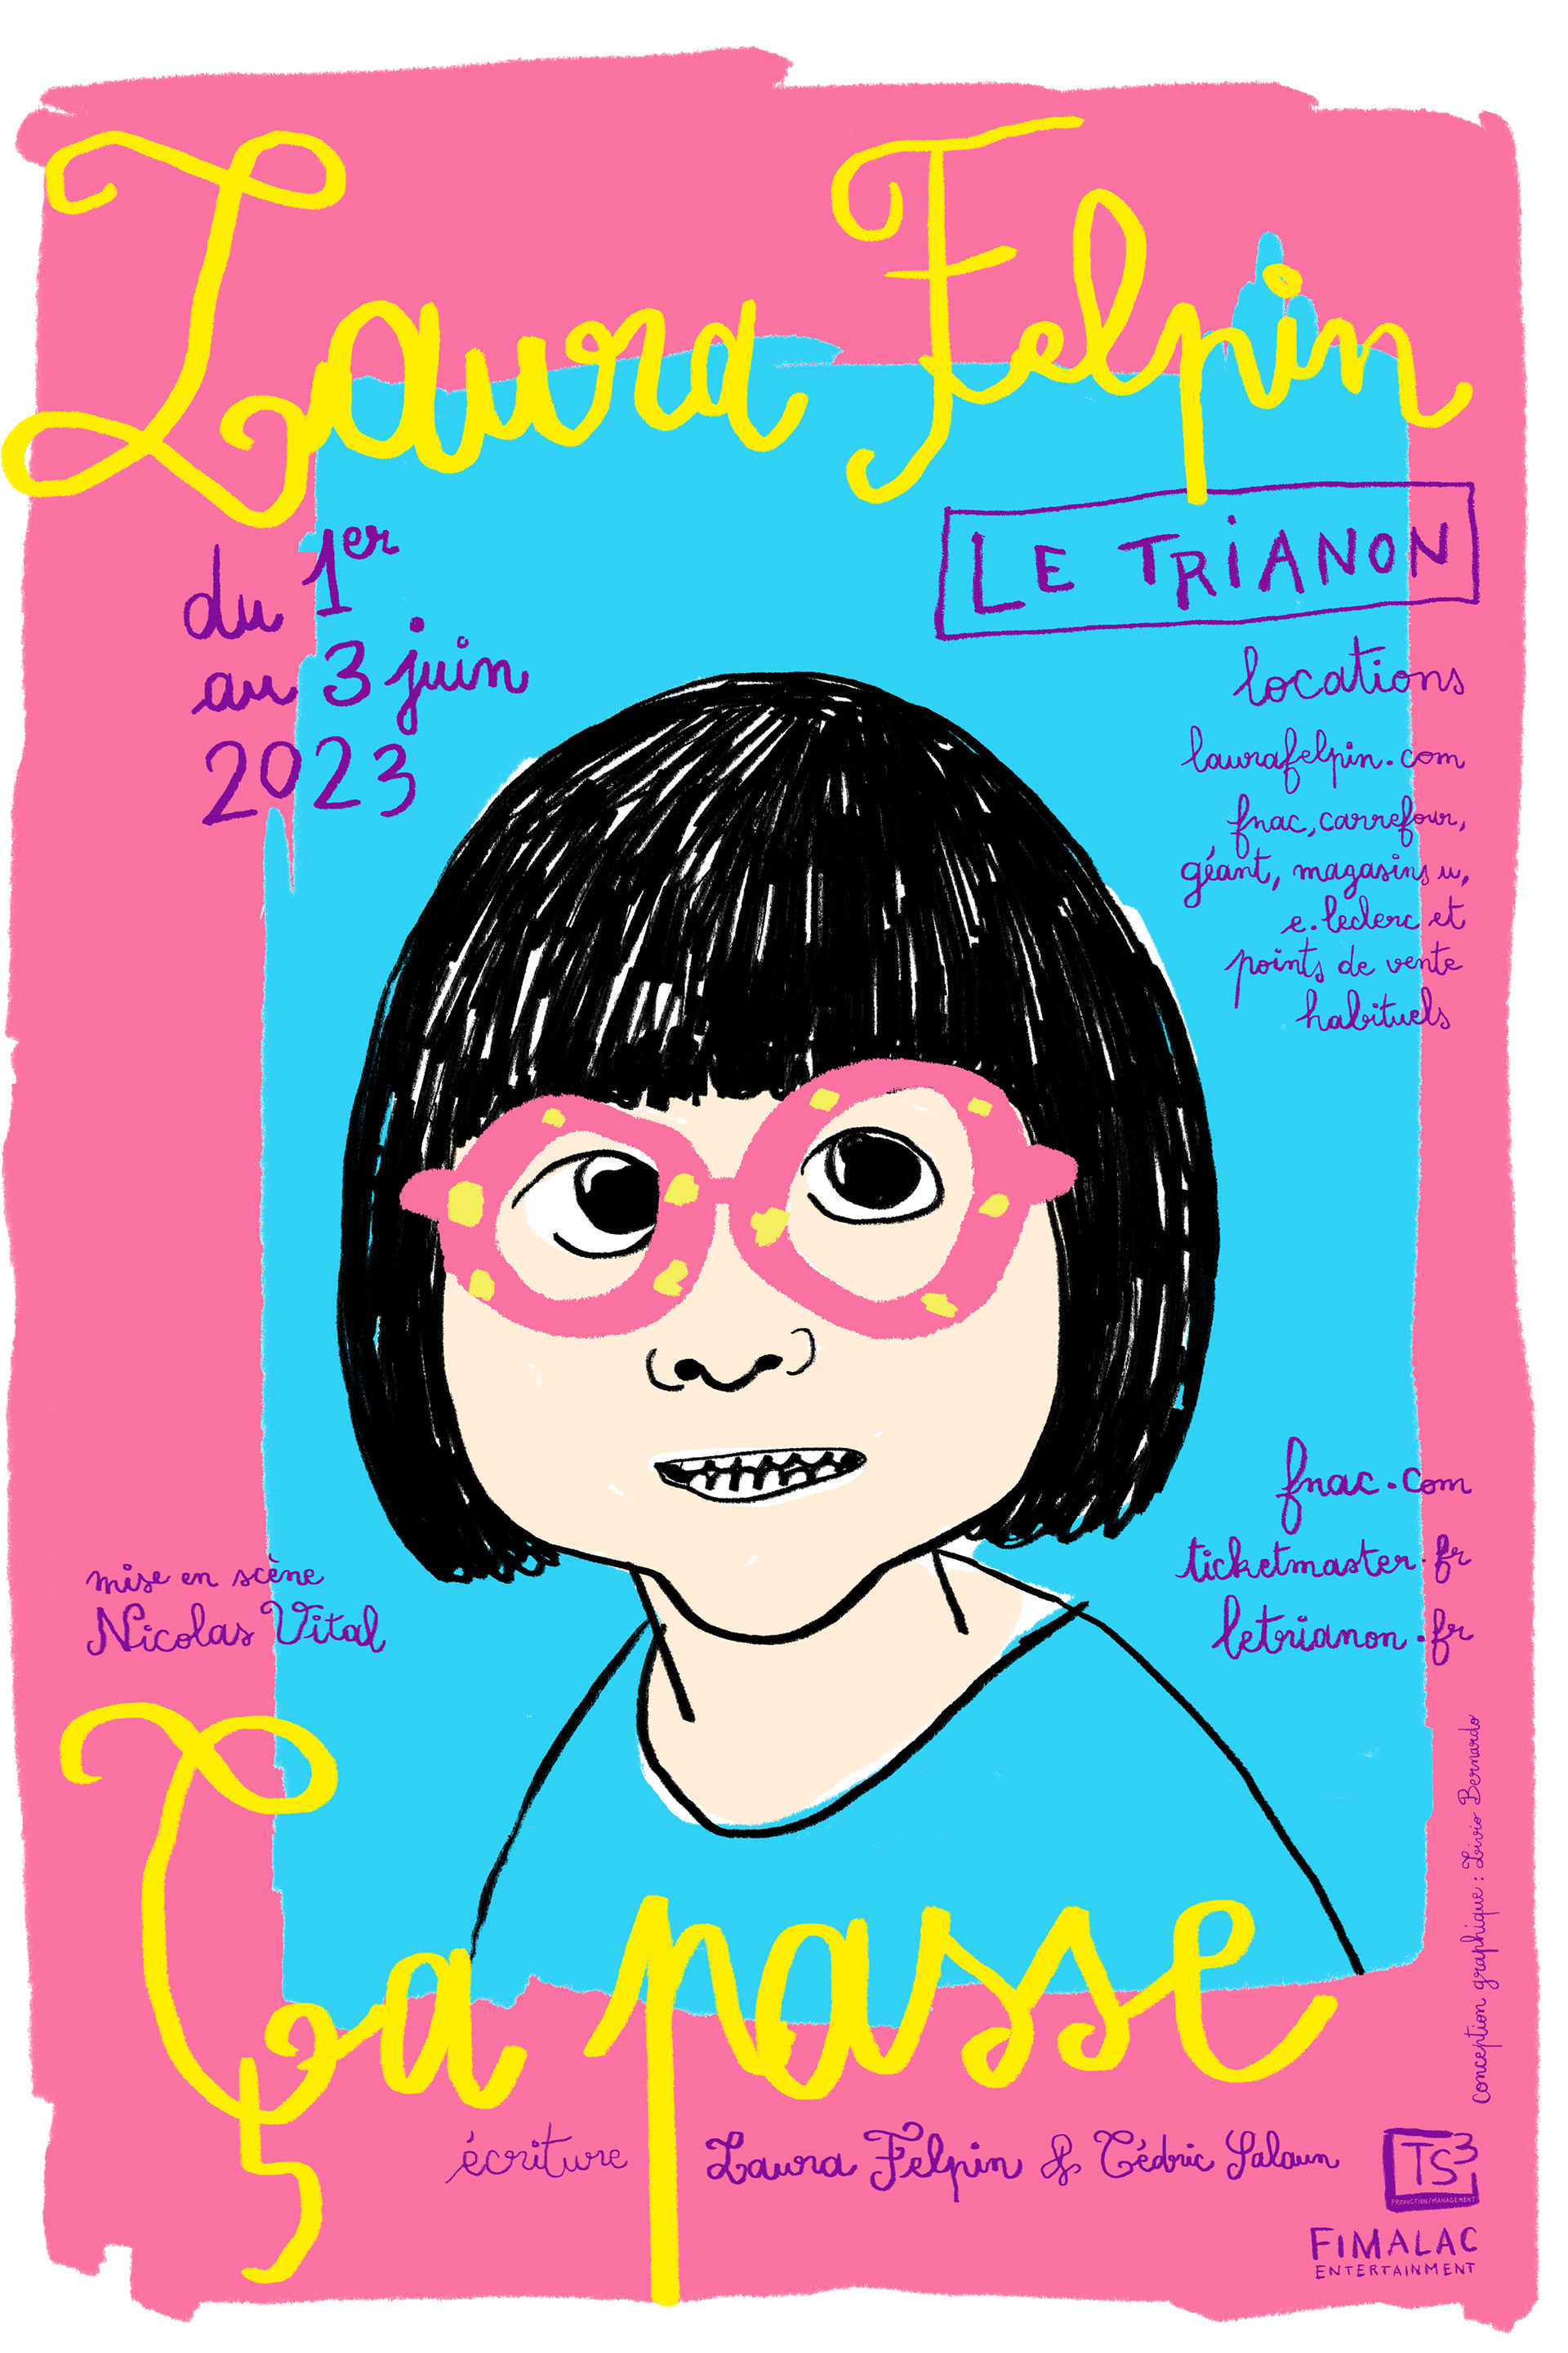 Laura Felpin
du 1er
au 3 juin
2023
LE TRIANON
locations
laurafelpin.com
fnac, carrefour,
géant, magasins u,
e.leclerc et
points de vente
habituels
fnac.com
ticketmaster.fr
letrianon.fr
mise en scène
Nicolas Vital
Ça passe
écriture Laura Felpin & Cédric Salaun
conception graphique : Livio Bernardo
TS3
PRODUCTION/MANAGEMENT
FIMALAC
ENTERTAINMENT